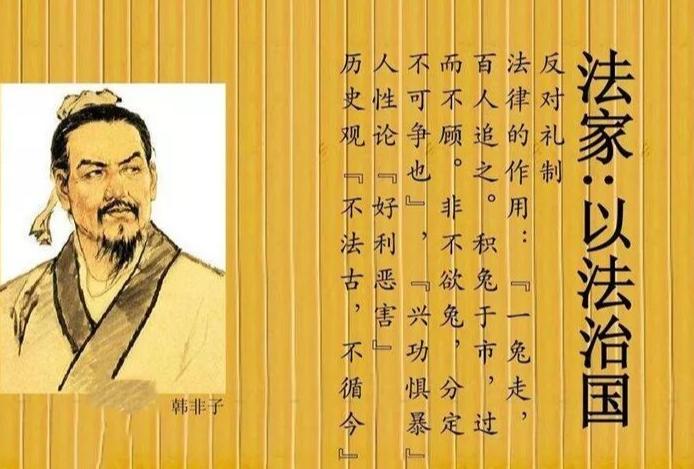 法家：以法治国
反对礼制
法律的作用：『一兔走，
百人追之。积兔于市，过
而不顾。非不欲兔，分定
不可争也』，『兴功惧暴』
人性论『好利恶害』
历史观『不法古，不循今』
韩非子